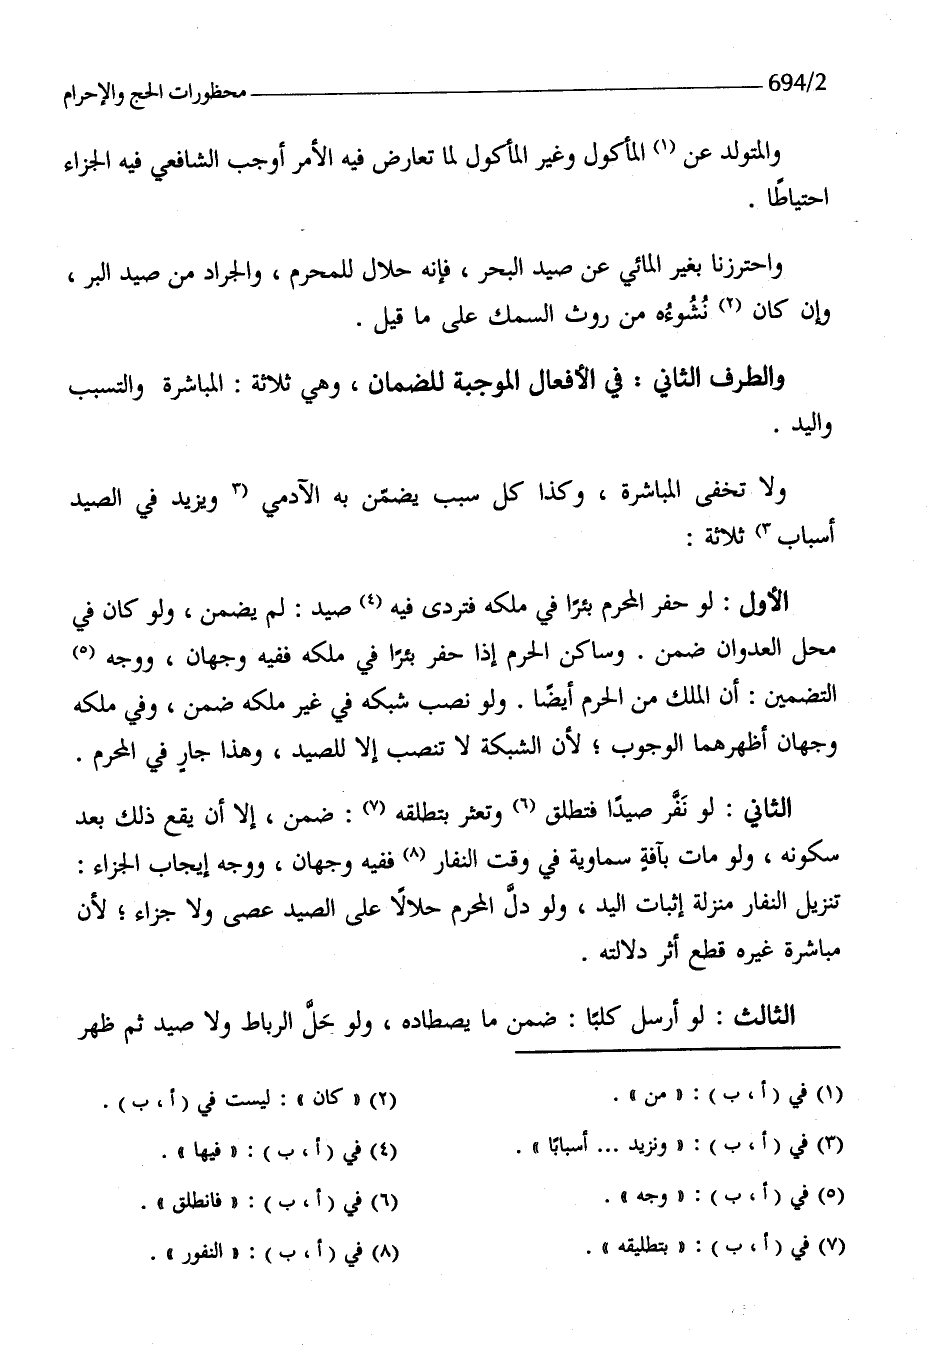 694/2 محظورات الحج والإحرام
والمتولد عن (١) المأكول وغير المأكول لما تعارض فيه الأمر أوجب الشافعي فيه الجزاء
احتياطًا .
واحترزنا بغير المائي عن صيد البحر ، فإنه حلال للمحرم ، والجراد من صيد البر ،
وإن كان (٢) نُشُوءُه من روث السمك على ما قيل .
والطرف الثاني : في الأفعال الموجبة للضمان ، وهي ثلاثة : المباشرة والتسبب
واليد .
ولا تخفى المباشرة ، وكذا كل سبب يضمّن به الآدمي (٣ ويزيد في الصيد
أسباب ٣) ثلاثة :
الأول : لو حفر المحرم بئرًا في ملكه فتردى فيه (٤) صيد : لم يضمن ، ولو كان في
محل العدوان ضمن . وساكن الحرم إذا حفر بئرًا في ملكه ففيه وجهان ، ووجه (٥)
التضمين : أن الملك من الحرم أيضًا . ولو نصب شبكه في غير ملكه ضمن ، وفي ملكه
وجهان أظهرهما الوجوب ؛ لأن الشبكة لا تنصب إلا للصيد ، وهذا جارٍ في المحرم .
الثاني : لو نَفَّر صيدًا فتطلق (٦) وتعثر بتطلقه (٧) : ضمن ، إلا أن يقع ذلك بعد
سكونه ، ولو مات بآفةٍ سماوية في وقت النفار (٨) ففيه وجهان ، ووجه إيجاب الجزاء :
تنزيل النفار منزلة إثبات اليد ، ولو دلَّ المحرم حلالًا على الصيد عصى ولا جزاء ؛ لأن
مباشرة غيره قطع أثر دلالته .
الثالث : لو أرسل كلبًا : ضمن ما يصطاده ، ولو حَلَّ الرباط ولا صيد ثم ظهر
(١) في ( أ ، ب ) : « من » . (٢) « كان » : ليست في ( أ ، ب ) .
(٣) في ( أ ، ب ) : « ونزيد ... أسبابًا » . (٤) في ( أ ، ب ) : « فيها » .
(٥) في ( أ ، ب ) : « وجه » . (٦) في ( أ ، ب ) : « فانطلق » .
(٧) في ( أ ، ب ) : « بتطليقه » . (٨) في ( أ ، ب ) : « النفور » .